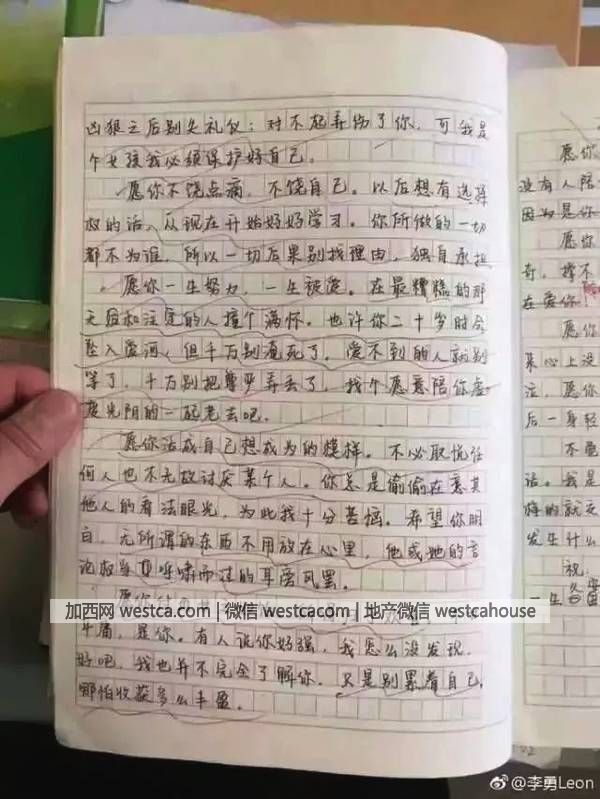 凶狠之后别失礼仪:对不起弄伤了你,可我是
个女孩我必须保护好自己。
愿你不饶点滴,不饶自己。以后想有选择
权的话,从现在开始好好学习。你所做的一切
都不为谁,所以一切后果别找理由,独自承担
愿你一生努力,一生被爱。在最糟糕的那
天后和注定的人撞个满怀。也许你二十岁时会
坠入爱河,但千万别淹死了。爱不到的人就别
等了,千万别把尊严弄丢了,找个愿意陪你虚
度光阴的一起老去吧。
愿你活成自己想成为的模样。不必取悦任
何人也不无故讨厌某个人。你总是偷偷在意其
他人的看法眼光,为此我十分苦恼。希望你明
白,无所谓的东西不用放在心里,他或她的言
论权当呼啸而过的耳旁风罢。
愿你
加西网 westca.com | 微信 westcacom | 地产微信 westcahouse
是你。有人说你好强,我怎么没发现.
好吧,我也并不完全了解你。只是别累着自己,
哪怕收获多么丰盈。
愿你
没有人陪
因为是你
愿你
奇,撑不
在爱你!
愿你
某心上没
泣,愿你
后一身轻
不要
话。我是
悔的就交
发生什么
祝:
一生
@李勇Leon